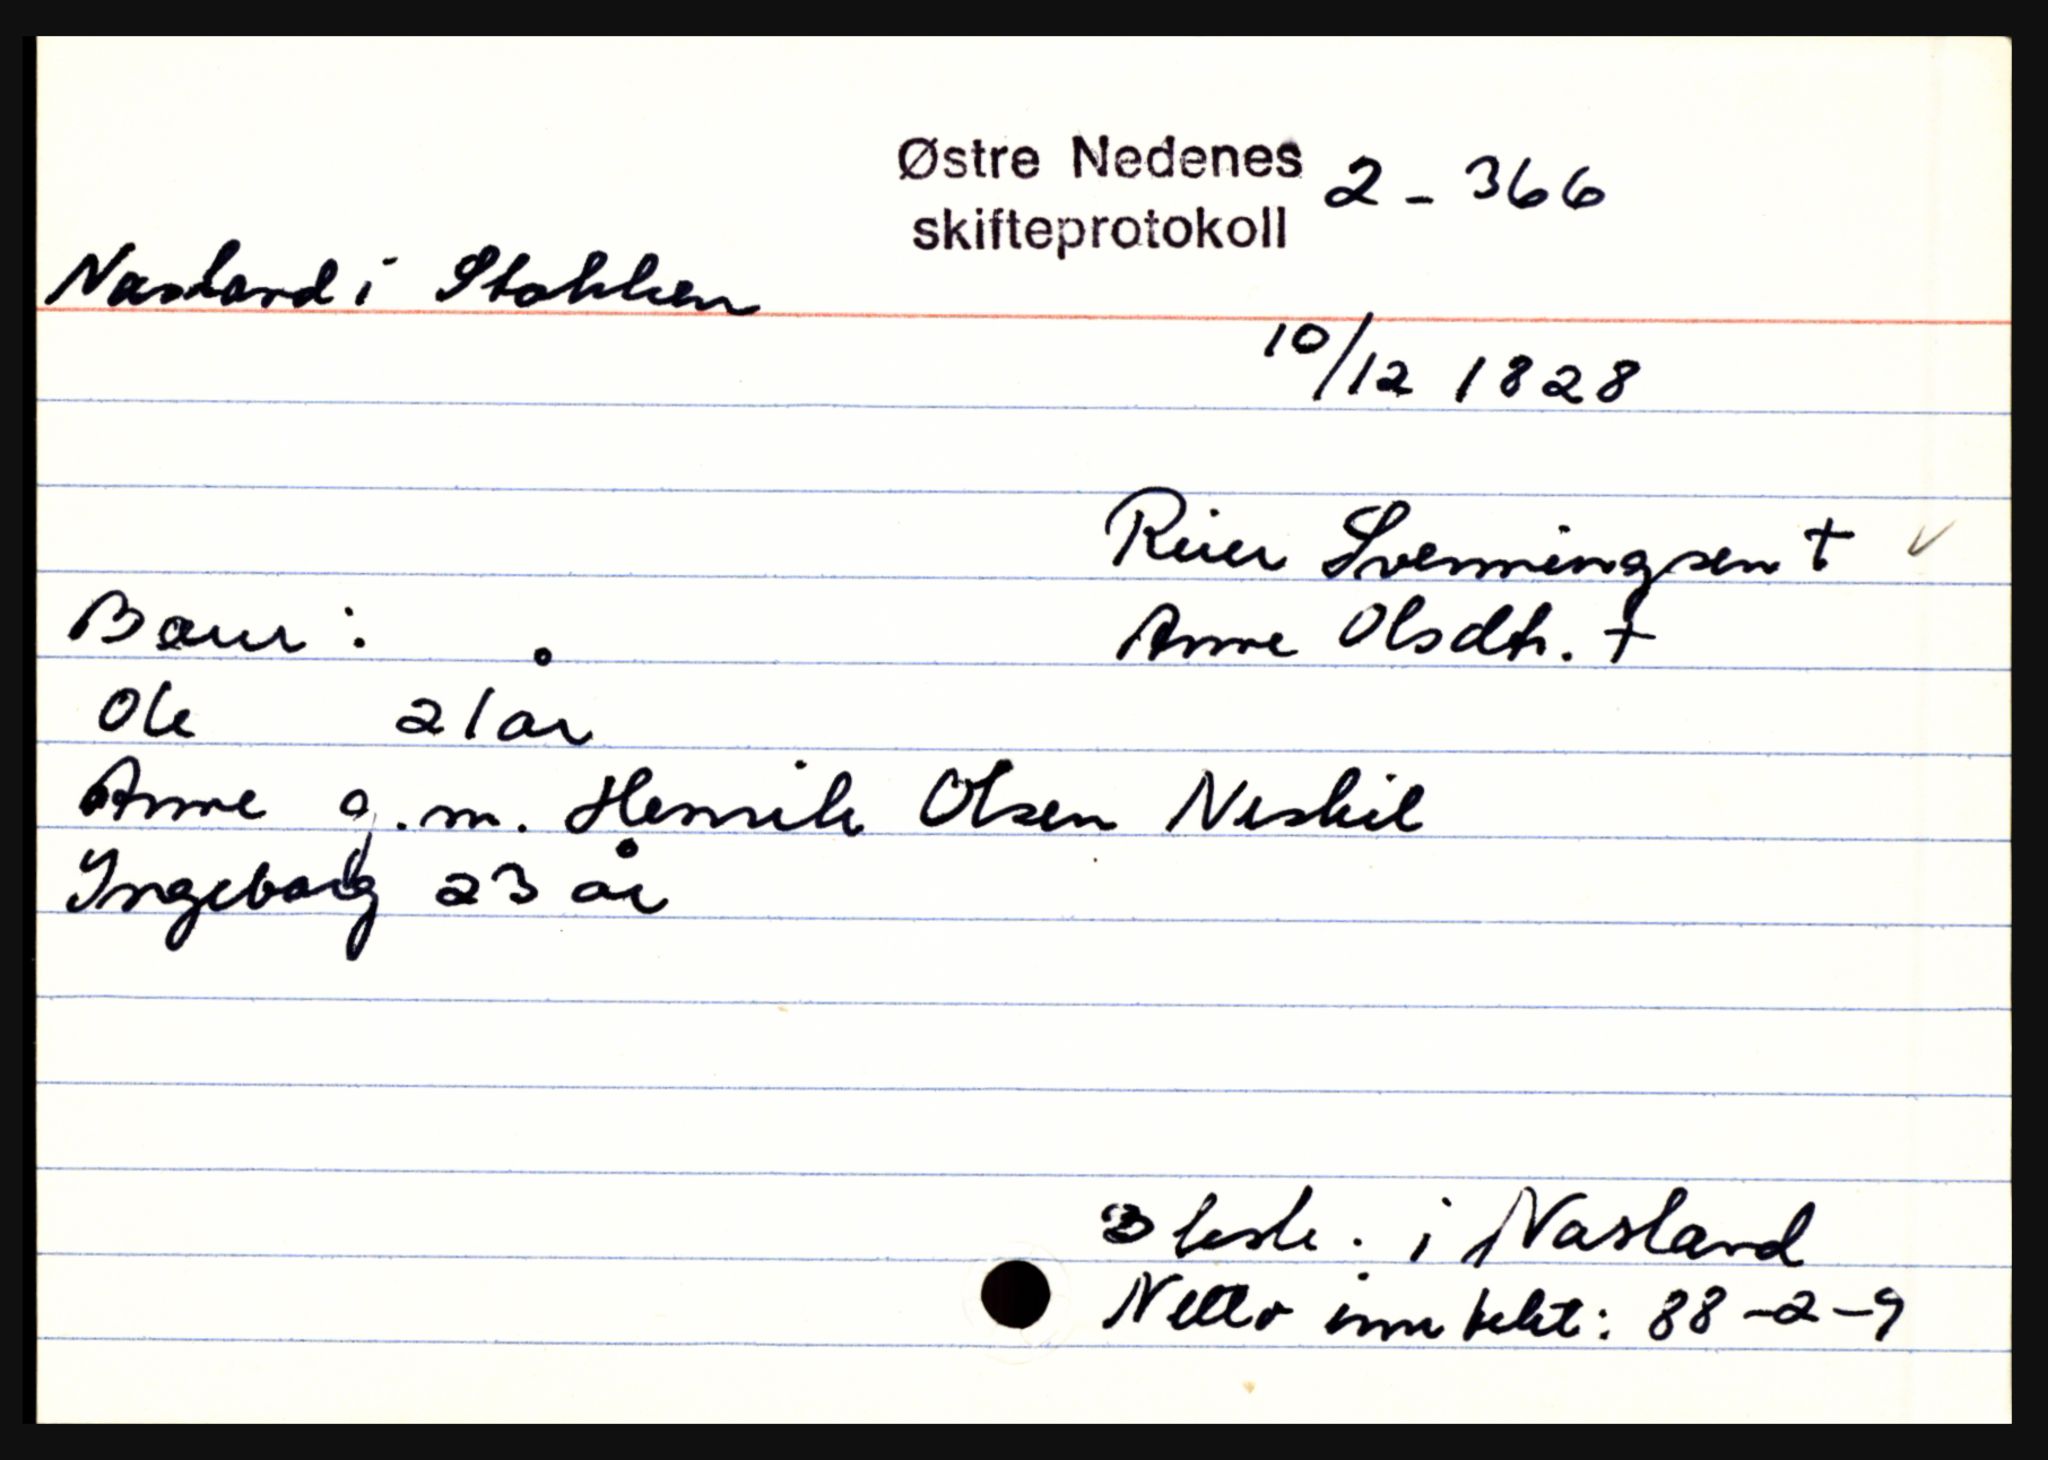 Østre Nedenes 2-366
skifteprotokoll
Nasland i Stokken
10/12 1828
Reier Svenningsen +
Barn: Anne Olsdtr. +
Ole 21 år
Anne g.m. Henrik Olsen Neskil
Ingeborg 23 år
i Nasland
Netto inntekt: 88-2-9